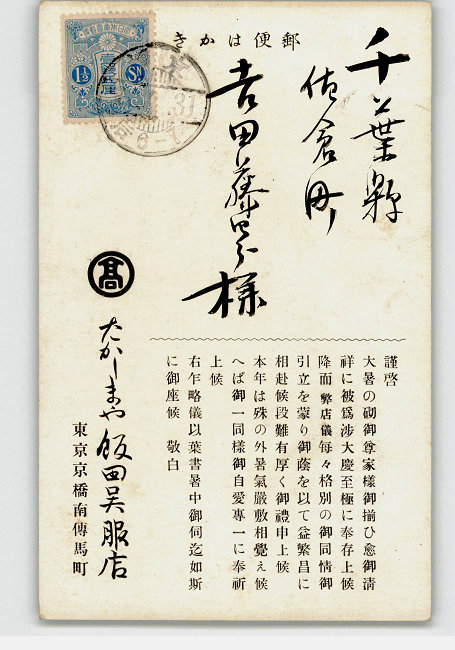 郵便はかき
1½ Sn
31
千葉縣
佐倉町
吉田藤 様
謹啓
大暑の砌御尊家樣御揃ひ愈御淸
祥に被爲涉大慶至極に奉存上候
降而弊店儀每々格別の御同情御
引立を蒙り御蔭を以て益繁昌に
相赴候段難有厚く御禮申上候
本年は殊の外暑氣嚴敷相覺え候
へば御一同樣御自愛專一に奉祈
上候
右乍略儀以葉書暑中御伺迄如斯
に御座候 敬白
髙
たかしまや飯田呉服店
東京京橋南傳馬町